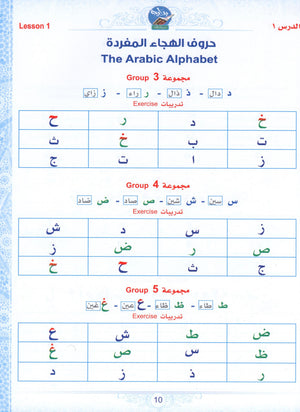 Lesson 1
الدرس ١
حروف الهجاء المفردة
The Arabic Alphabet
مجموعة 3 Group
د دال - ذ ذال - ر راء - ز زاي
تدريبات Exercise
خ د ر ح
ت ب خ ث
ز ا ت ج
مجموعة 4 Group
س سين - ش شين - ص صاد - ض ضاد
تدريبات Exercise
ز س د ش
ص ر ض ز
ج ث ح خ
مجموعة 5 Group
ط طاء - ظ ظاء - ع عين - غ غين
تدريبات Exercise
ض ط ش ع
ظ س ص غ
ر خ ذ ز د
10